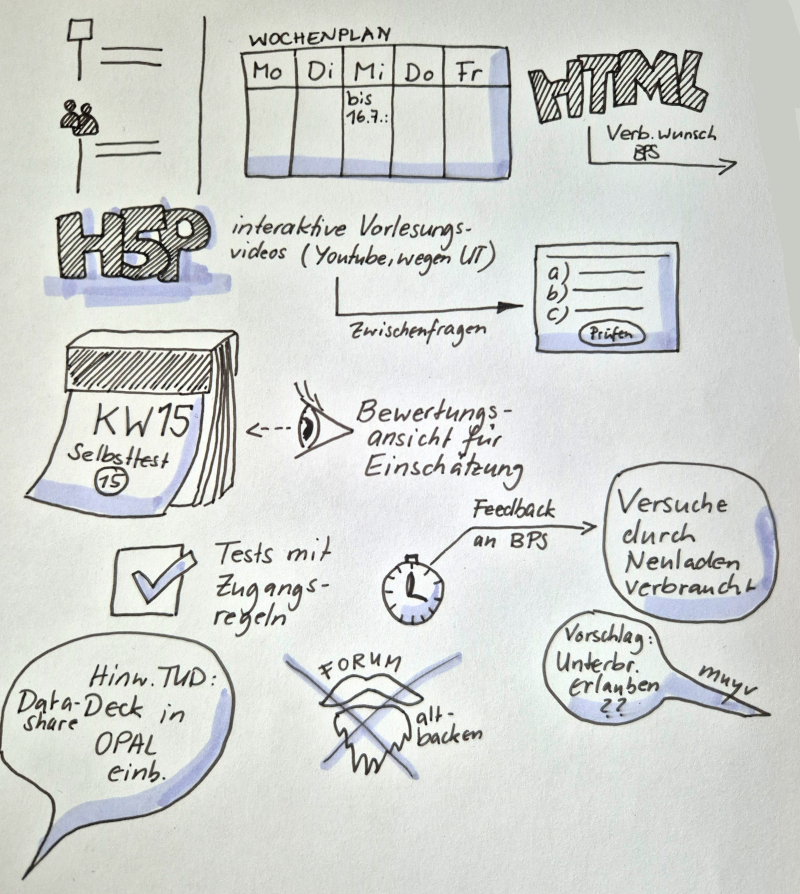 WOCHENPLAN
Mo Di Mi Do Fr
bis
16.7.:
HTML
Verb.wunsch
BPS
H5P
interaktive Vorlesungs-
videos (Youtube, wegen UT)
Zwischenfragen
a)
b)
c)
Prüfen
KW15
Selbsttest
15
Bewertungs-
ansicht für
Einschätzung
Feedback
an BPS
Versuche
durch
Neuladen
verbraucht
Tests mit
Zugangs-
regeln
Vorschlag:
Unterbr.
Erlauben
??
Hinw. TUD:
Data-Deck in
share
OPAL
einb.
FORUM
alt-
backen